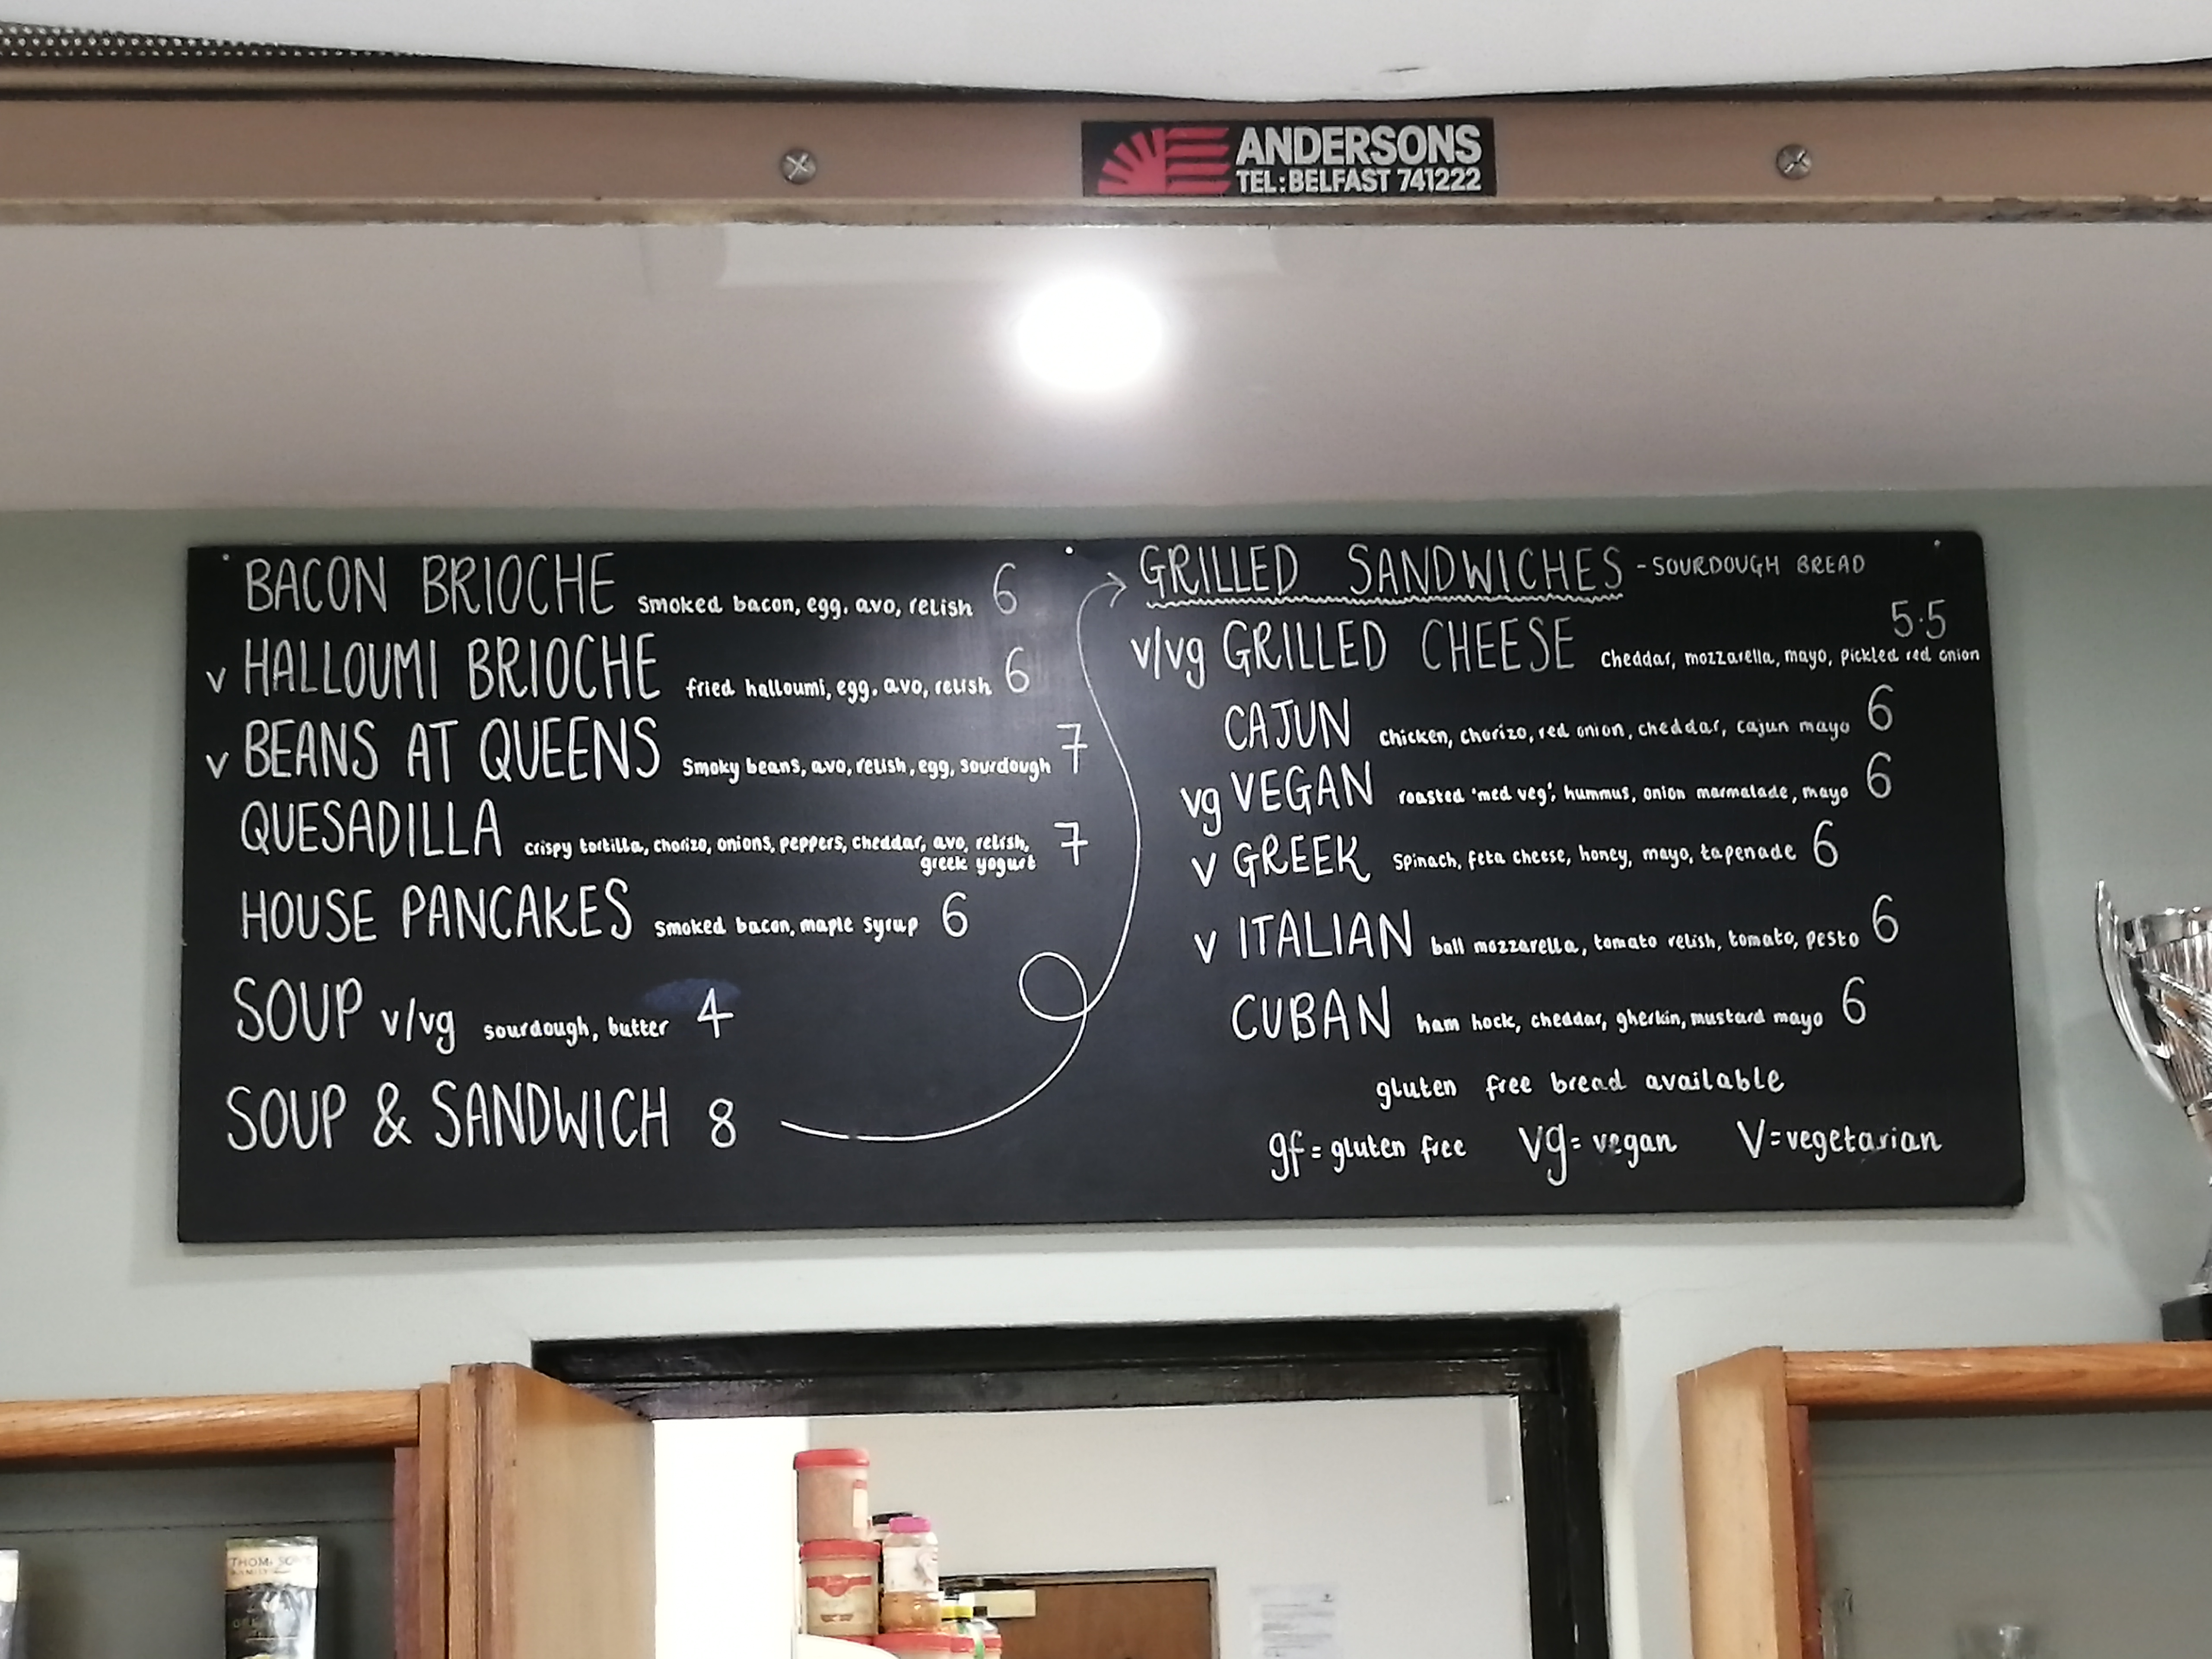 ANDERSONS
TEL:BELFAST 741222
BACON BRIOCHE Smoked bacon, egg, avo, relish 6
v HALLOUMI BRIOCHE fried halloumi, egg, avo, relish 6
v BEANS AT QUEENS Smoky beans, avo, relish, egg, sourdough 7
QUESADILLA crispy tortilla, chorizo, onions, peppers, cheddar, avo, relish, 7
greek yogurt
HOUSE PANCAKES Smoked bacon, maple syrup 6
SOUP v/vg sourdough, butter 4
SOUP & SANDWICH 8
GRILLED SANDWICHES - SOURDOUGH BREAD
5.5
v/vg GRILLED CHEESE Cheddar, mozzarella, mayo, pickled red onion
CAJUN chicken, chorizo, red onion, cheddar, cajun mayo 6
vg VEGAN roasted 'med veg', hummus, onion marmalade, mayo 6
V GREEK Spinach, feta cheese, honey, mayo, tapenade 6
V ITALIAN ball mozzarella, tomato relish, tomato, pesto 6
CUBAN ham hock, cheddar, gherkin, mustard mayo 6
gluten free bread available
gf = gluten free Vg = vegan V = vegetarian